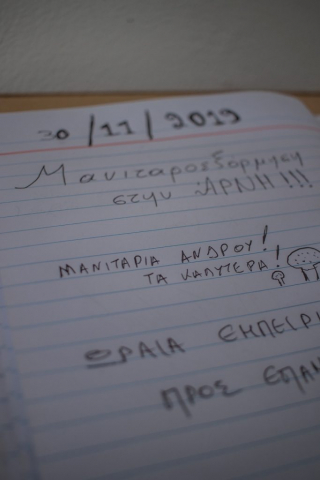 30/11/2019
Μανιταροεξόρμηση
στην ΆΡΝΗ!!!
ΜΑΝΙΤΑΡΙΑ ΑΝΔΡΟΥ!
ΤΑ ΚΑΛΥΤΕΡΑ!
ΩΡΑΙΑ ΕΜΠΕΙΡΙ
ΠΡΟΣ ΕΠΑΝ